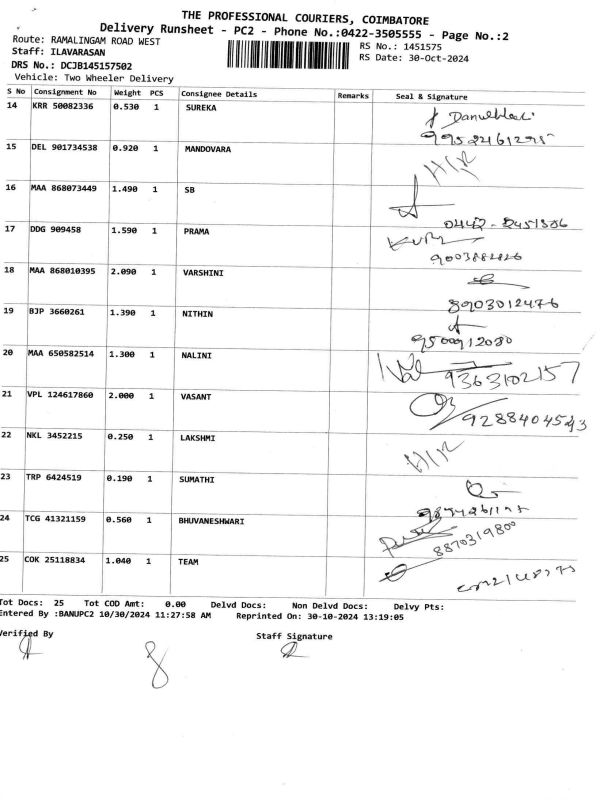 THE PROFESSIONAL COURIERS, COIMBATORE
Delivery Runsheet - PC2 - Phone No.:0422-3505555 - Page No.:2
Route: RAMALINGAM ROAD WEST
RS No.: 1451575
Staff: ILAVARASAN
RS Date: 30-Oct-2024
DRS No.: DCJB145157502
Vehicle: Two Wheeler Delivery
S No Consignment No Weight PCS Consignee Details Remarks Seal & Signature
14 KRR 50082336 0.530 1 SUREKA
15 DEL 901734538 0.920 1 MANDOVARA H/R
16 MAA 868073449 1.490 1 SB
17 DDG 909458 1.590 1 PRAMA
18 MAA 868010395 2.090 1 VARSHINI
8903012476
19 BJP 3660261 1.390 1 NITHIN
9500912080
20 MAA 650582514 1.300 1 NALINI
9363102157
21 VPL 124617860 2.000 1 VASANT
9288404543
22 NKL 3452215 0.250 1 LAKSHMI H/R
23 TRP 6424519 0.190 1 SUMATHI
24 TCG 41321159 0.560 1 BHUVANESHWARI
8870319800
25 COK 25118834 1.040 1 TEAM
Tot Docs: 25 Tot COD Amt: 0.00 Delvd Docs: Non Delvd Docs: Delvy Pts:
Entered By :BANUPC2 10/30/2024 11:27:58 AM Reprinted On: 30-10-2024 13:19:05
Verified By Staff Signature